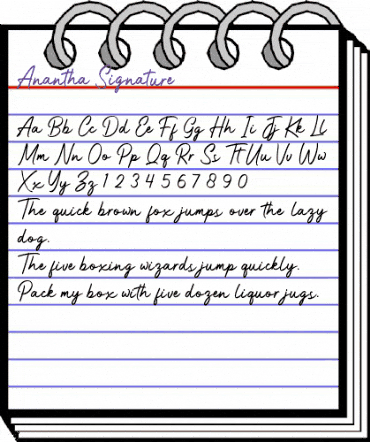 Anantha Signature
Aa Bb Cc Dd Ee Ff Gg Hh Ii Jj Kk Ll
Mm Nn Oo Pp Qq Rr Ss Tt Uu Vv Ww
Xx Yy Zz 1 2 3 4 5 6 7 8 9 0
The quick brown fox jumps over the lazy
dog.
The five boxing wizards jump quickly.
Pack my box with five dozen liquor jugs.